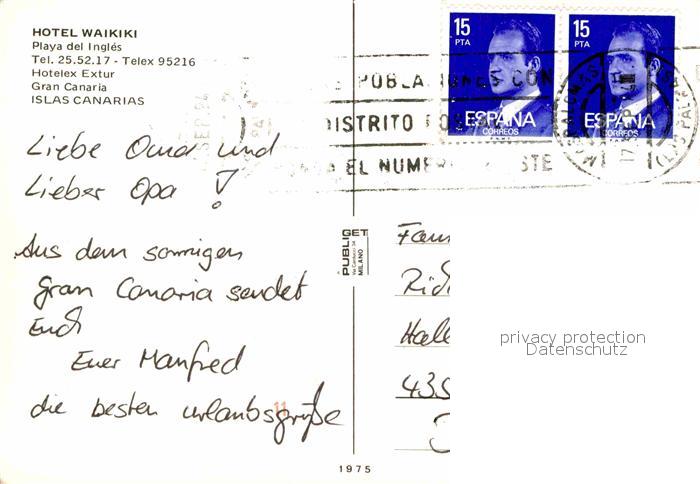 HOTEL WAIKIKI
Playa del Inglés
Tel. 25.52.17 - Telex 95216
Hotelex Extur
Gran Canaria
ISLAS CANARIAS
15
PTA
ESPAÑA
CORREOS
15
PTA
ESPAÑA
CORREOS
POBLACIONES CON
DISTRITO POS
EL NUME STE
Liebe Oma und
Lieber Opa !
Aus dem sonnigen
Gran Canaria sendet
Euch
Euer Manfred
die besten Urlaubsgrüße
PUBLIGET
Via Carducci 34
MILANO
Fam
Rich
Hall
435
privacy protection
Datenschutz
1975